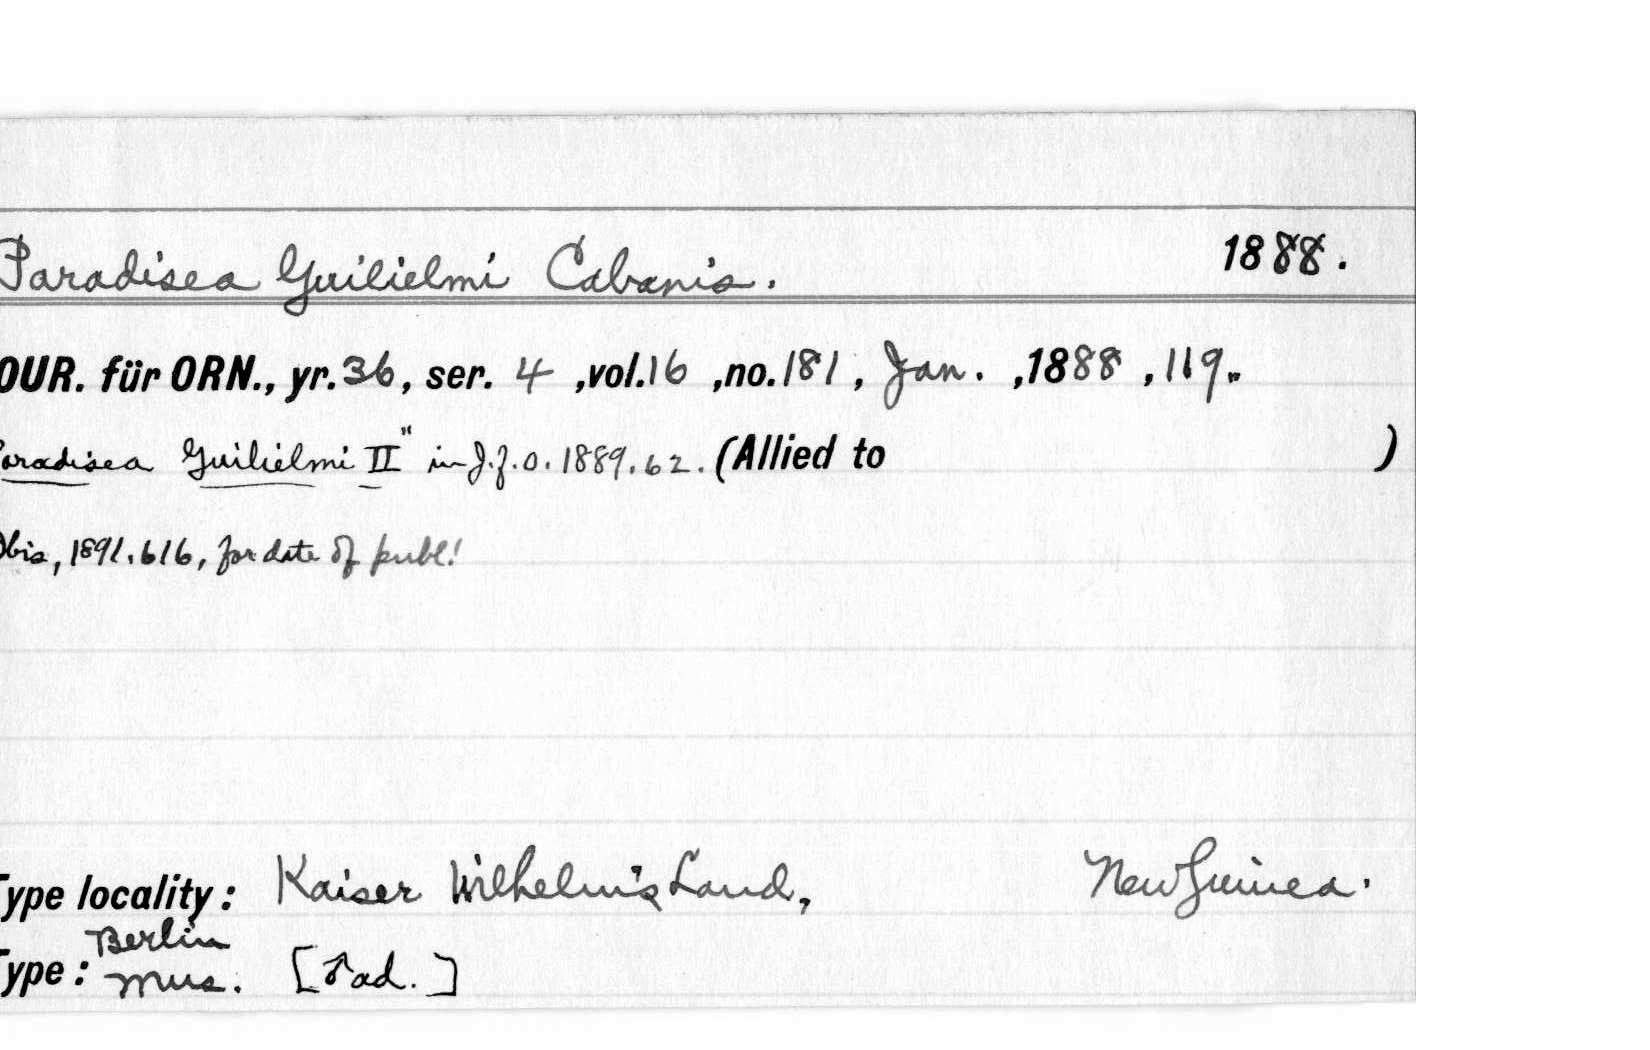 Paradisea Guilielmi Cabanis. 1888.
OUR. für ORN., yr.36, ser. 4 ,vol.16 ,no.181, Jan. ,1888 ,119..
Paradisea Guilielmi II" in J.f.O. 1889.62. (Allied to )
Ibis, 1891.616, for date of publ!
Type locality: Kaiser Wilhelm's Land, New Guinea.
Type: Berlin Mus. [♂ ad.]